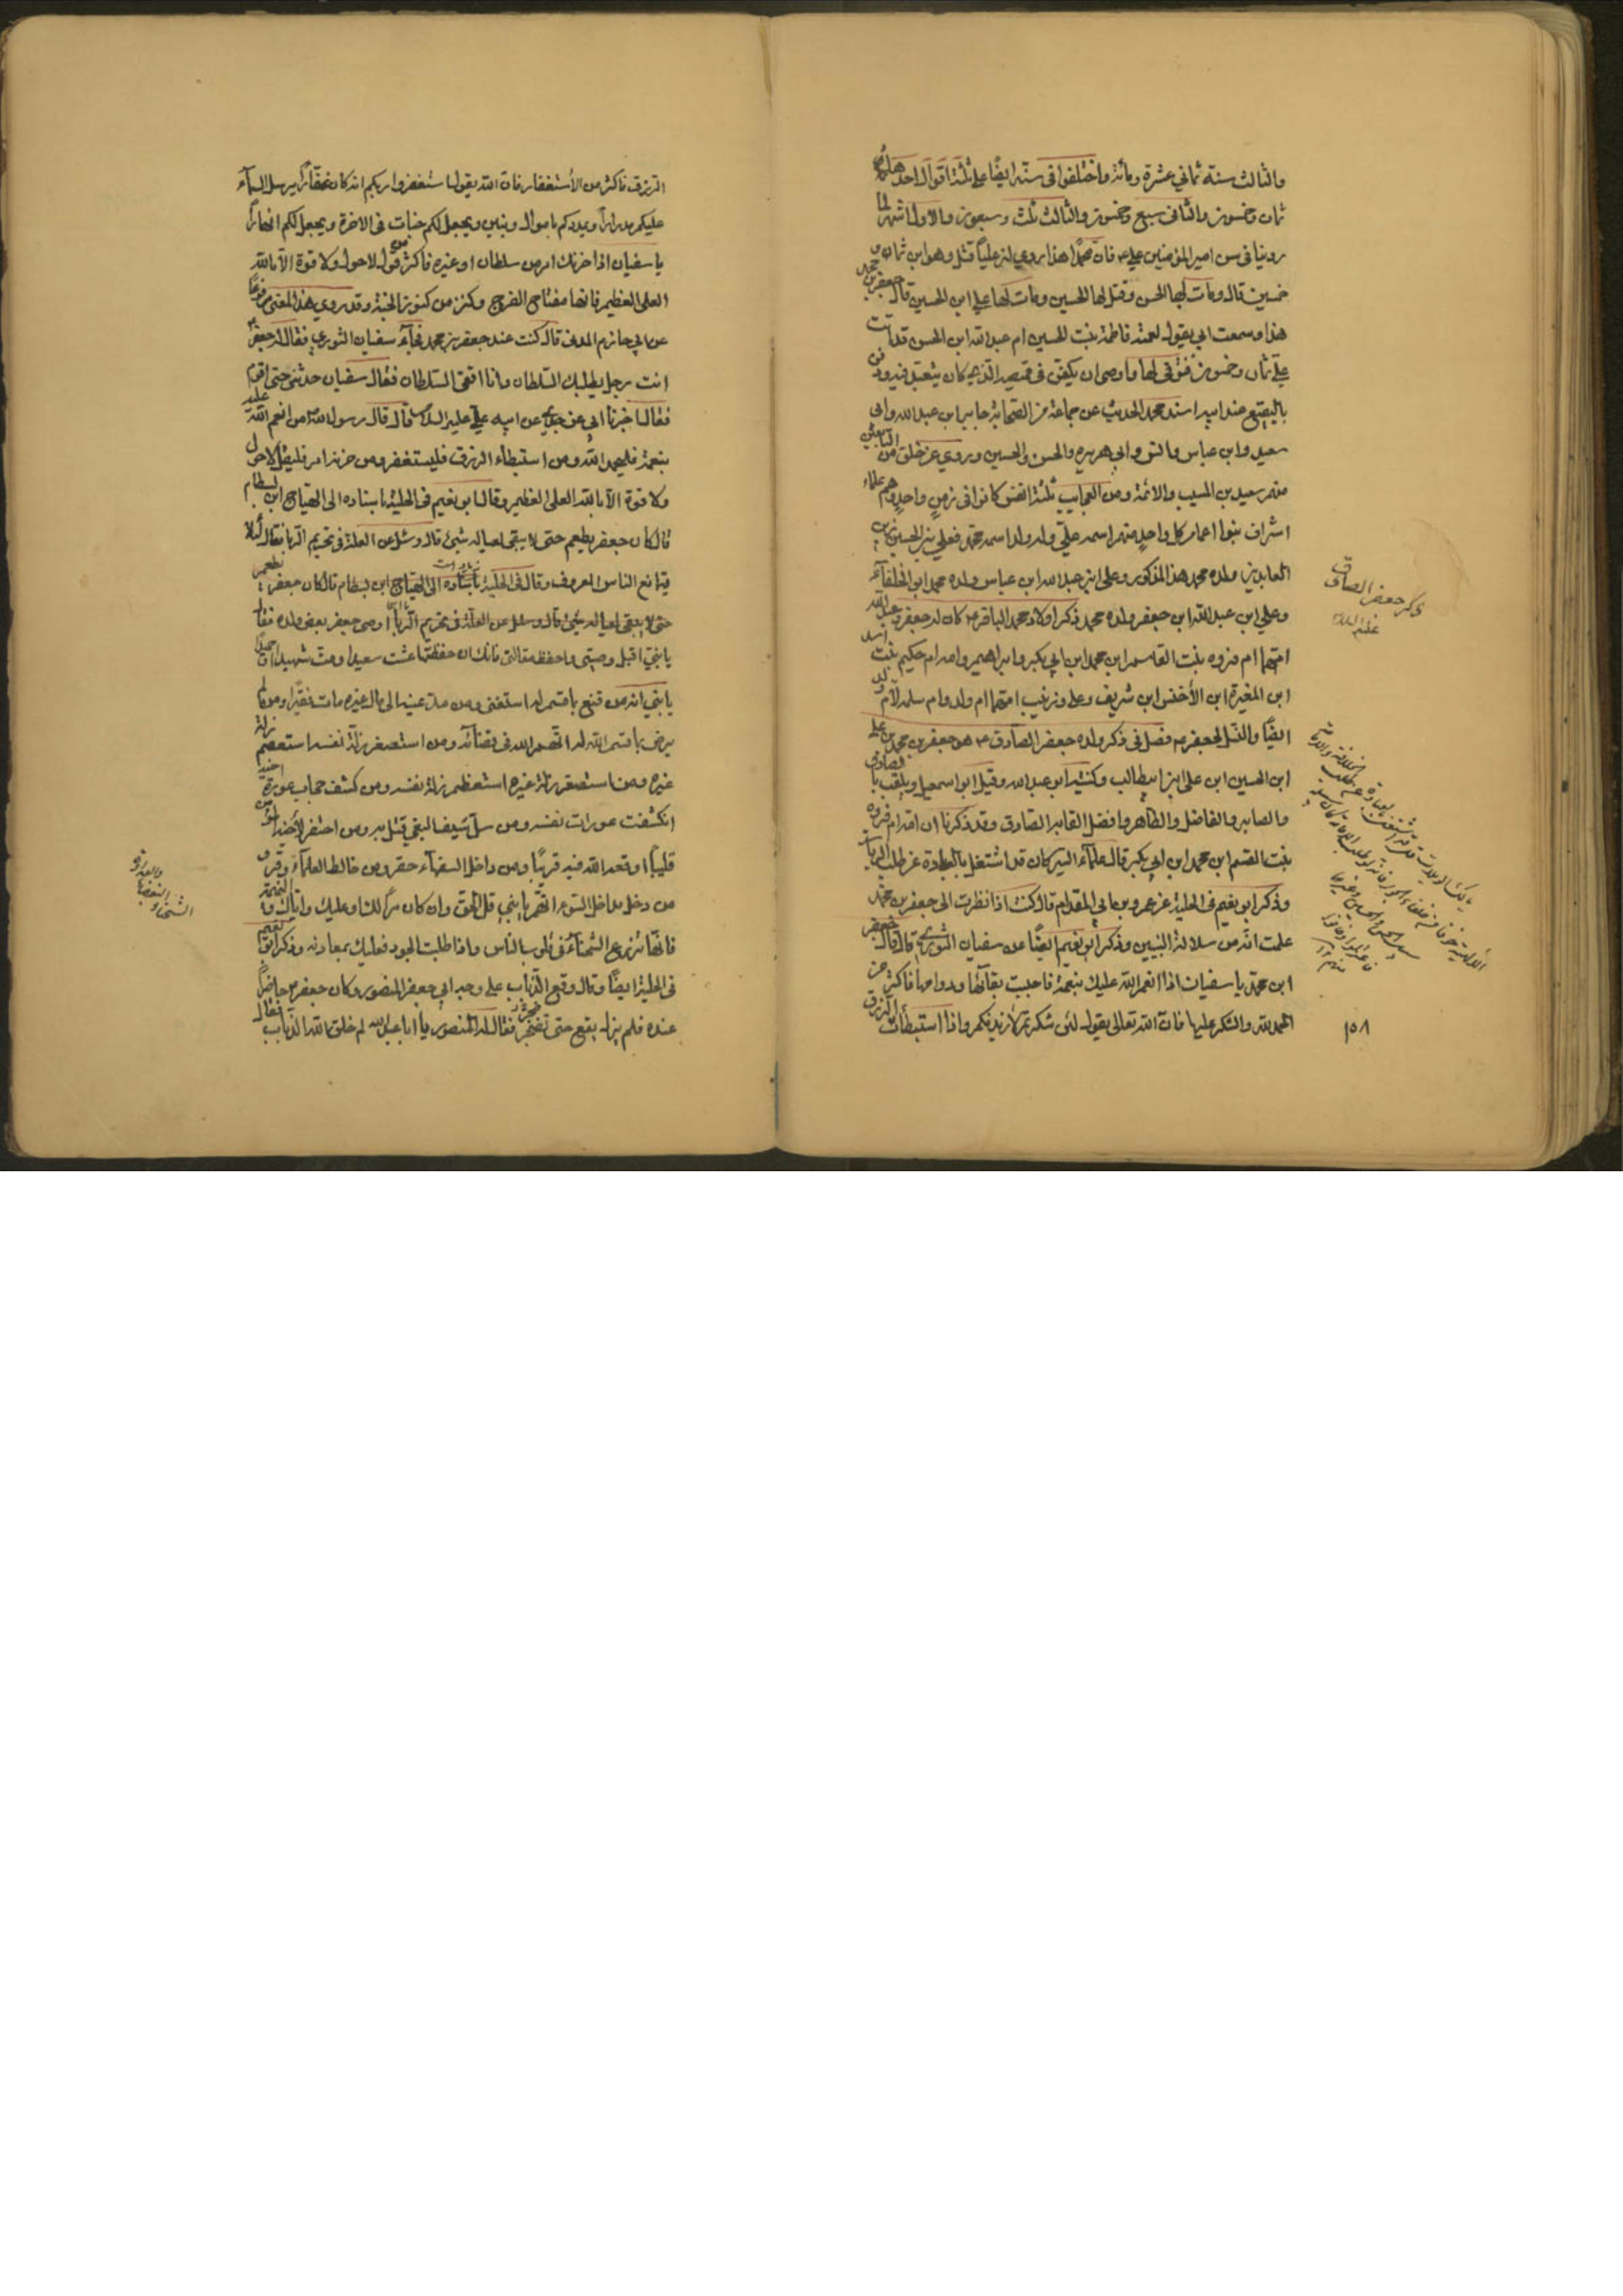 والثالث سنة ثماني عشرة ومائة واختلفوا في سنه ايضًا على ثلثة اقوال احدها
ثمان وخمسون والثاني سبع وخمسون والثالث ثلث وسبعون والاول اشهر لما
روينا في سن امير المؤمنين علي فان محمدًا هذا روي ان عليًا قتل وهو ابن ثمان و
خمسين قال ومات لها الحسن وقتل لها الحسين ومات لها علي ابن الحسين قال جعفر بن محمد
هذا وسمعت ابي يقول لعمته فاطمة بنت الحسين ام عبد الله ابن الحسن قد اتت
علي ثمان وخمسون فتوفي لها واوصى ان يكفن في قميصه الذي كان يتعبد فيه ودفن
بالبقيع عند ابيه اسند محمد الحديث عن جماعة من الصحابة جابر ابن عبد الله وابي
سعيد وابن عباس وانس وابي هريرة والحسن والحسين وروي عن خلق من التابعين
منهم سعيد بن المسيب والائمة ومن العجايب ثلثة انفس كانوا في زمن واحد وهم علماء
اشراف بنوا اعمام كل واحد منهم اسمه علي وله ولد اسمه محمد فعلي بن الحسين زين
العابدين ولده محمد هذا المذكور وعلي ابن عبد الله ابن عباس ولده محمد ابو الخلفآء
وعلي ابن عبد الله ابن جعفر ولده محمد ذكر اولاد محمد الباقر كان له جعفر وعبد الله
امهما ام فروه بنت القاسم ابن محمد ابن ابي بكر وابراهيم وامه ام حكيم بنت اسد
ابن المغيرة ابن الأخنس ابن شريف وعلي وزينب امهما ام ولد وام سلمه لأم ولد
ايضًا والنسل لجعفر فصل في ذكر ولده جعفر الصادق هو جعفر بن محمد بن علي
ابن الحسين ابن علي ابن ابيطالب وكنيته ابو عبد الله وقيل ابو اسمعيل ويلقب بالصادق
والصابر والفاضل والطاهر وافضل القابه الصادق وقد ذكرنا ان امه ام فروه
بنت القسم ابن محمد ابن ابي بكر قال علمآء السير كان قد اشتغل بالعبادة عن طلب الرياسة
وذكر ابو نعيم في الحلية عن عمرو بن ابي المقدام قال كنت اذا نظرت الى جعفر بن محمد
علمت انه من سلالة النبيين وذكر ابو نعيم ايضًا عن سفيان الثوري قال قال جعفر
ابن محمد يا سفيان اذا انعم الله عليك بنعمة فاحببت بقآئها ودوامها فاكثر من
الحمد لله والشكر عليها فان الله تعالى يقول لئن شكرتم لأزيدنكم واذا استبطأت الرزق
ذكر جعفر الصادق
عليه السلام
١٥٨
الرزق فاكثر من الأستغفار فان الله يقول استغفروا ربكم انه كان غفّارًا يرسل السمآء
عليكم مدرارًا ويمددكم باموال وبنين ويجعل لكم جنات في الاخرة ويجعل لكم انهارًا
يا سفيان اذا حزنك امر من سلطان او غيره فاكثر من قول لا حول ولا قوة الا بالله
العلي العظيم فانها مفتاح الفرج وكنز من كنوز الجنة وقد روي هذا المعنى مرفوعًا
عن ابي حازم المدني قال كنت عند جعفر بن محمد فجآء سفيان الثوري فقال له جعفر
انت رجل يطلبك السلطان وانا اتقي السلطان فقال سفيان حدثني حتى اقوم
فقال اخبرنا ابي عن جدي عن ابيه علي عليه السلام قال قال رسول الله من انعم الله عليه
بنعمة فليحمد الله ومن استبطاء الرزق فليستغفر ومن حزنه امر فليقل لا حول
ولا قوة الا بالله العلي العظيم وقال ابو نعيم في الحلية باسناده الى الهياج ابن بسطام
قال كان جعفر يطعم حتى لا يبقى لعياله شيئ قال وسئل عن العلة في تحريم الربا فقال لئلا
يتمانع الناس المعروف وقال في الحلية باسناده الى الهياج ابن بسطام قال كان جعفر يطعم
حتى لا يبقى لعياله شيئ قال وسئل عن العلة في تحريم الربا اوصى جعفر بعض ولده فقال
يا بني اقبل وصيتي واحفظ مقالتي فانك ان حفظتها عشت سعيدا ومت شهيدا حميدًا
يا بني انه من قنع بما قسم له استغنى ومن مد عينه الى مال غيره مات فقيرًا ومن لم
يرض بما قسم الله له اتهم الله في قضائه ومن استصغر زلة نفسه استعظم زلة
غيره ومن استصغر زلة غيره استعظم زلة نفسه ومن كشف حجاب عورة اخيه
انكشفت عورات نفسه ومن سل سيف البغي قتل به ومن احتفر لأخيه
قليبًا اوقعه الله فيه قريبًا ومن داخل السفهآء حقر ومن خالط العلمآء وقر و
من دخل مداخل السوء اتهم يا بني قل الحق وان كان مرًا لك او عليك واياك والنميمة
فانها تزرع الشحنآء في قلوب الناس واذا طلبت الجود فعليك بمعادنه وذكر ابو نعيم
في الحلية ايضًا وقال وقع الذباب على وجه ابي جعفر المنصور وكان جعفر حاضرًا
عنده فلم يزل يقع حتى تضجر فقال له المنصور يا ابا عبد الله لم خلق الله الذباب فقال